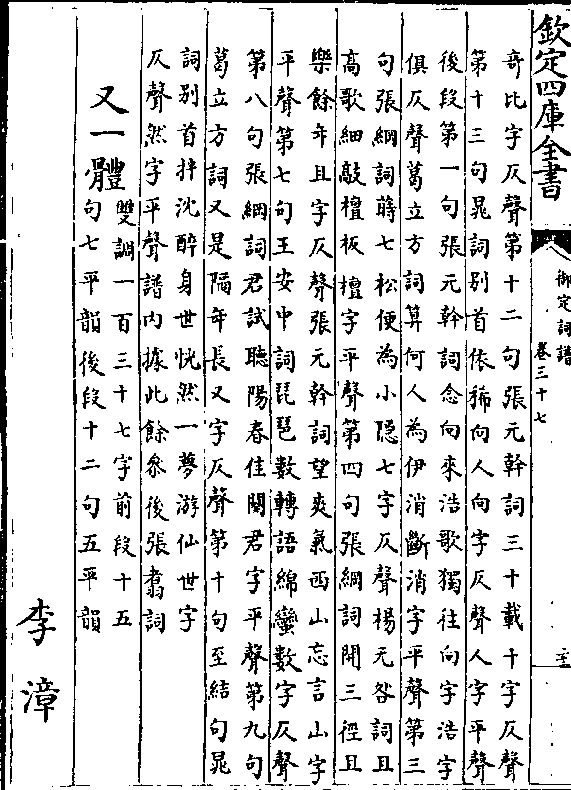 欽定四庫全書
御定詞譜
卷三十七
奇比字仄聲第十二句張元幹詞三十載十字仄聲
第十三句晁詞別首依稀向人向字仄聲人字平聲
後段第一句張元幹詞念向來浩歌獨往向字浩字
俱仄聲葛立方詞算何人為伊消斷消字平聲第三
句張綱詞蒔七松便為小隱七字仄聲楊元咎詞且
高歌細敲檀板檀字平聲第四句張綱詞開三徑且
樂餘年且字仄聲張元幹詞望爽氣西山忘言山字
平聲第七句王安中詞琵琶數轉語綿蠻數字仄聲
第八句張綱詞君試聽陽春佳闋君字平聲第九句
葛立方詞又是隔年長又字仄聲第十句至結句晁
詞別首拌沈醉身世恍然一夢游仙世字
仄聲然字平聲譜內據此餘參後張翥詞
又一體
雙調一百三十七字前段十五
句七平韻後段十二句五平韻
李漳